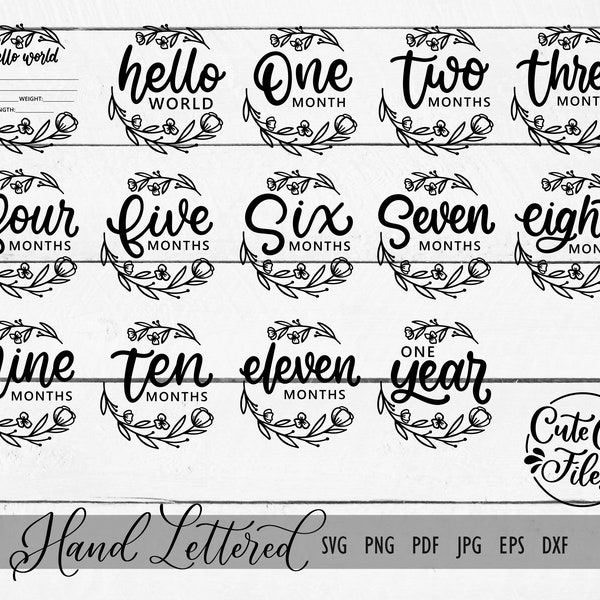 hello world
WEIGHT:
hello
WORLD
One
MONTH
two
MONTHS
four
MONTHS
five
MONTHS
Six
MONTHS
Seven
MONTHS
MONTHS
ten
MONTHS
eleven
MONTHS
ONE
year
Cute
Files
Hand Lettered
SVG PNG PDF JPG EPS DXF